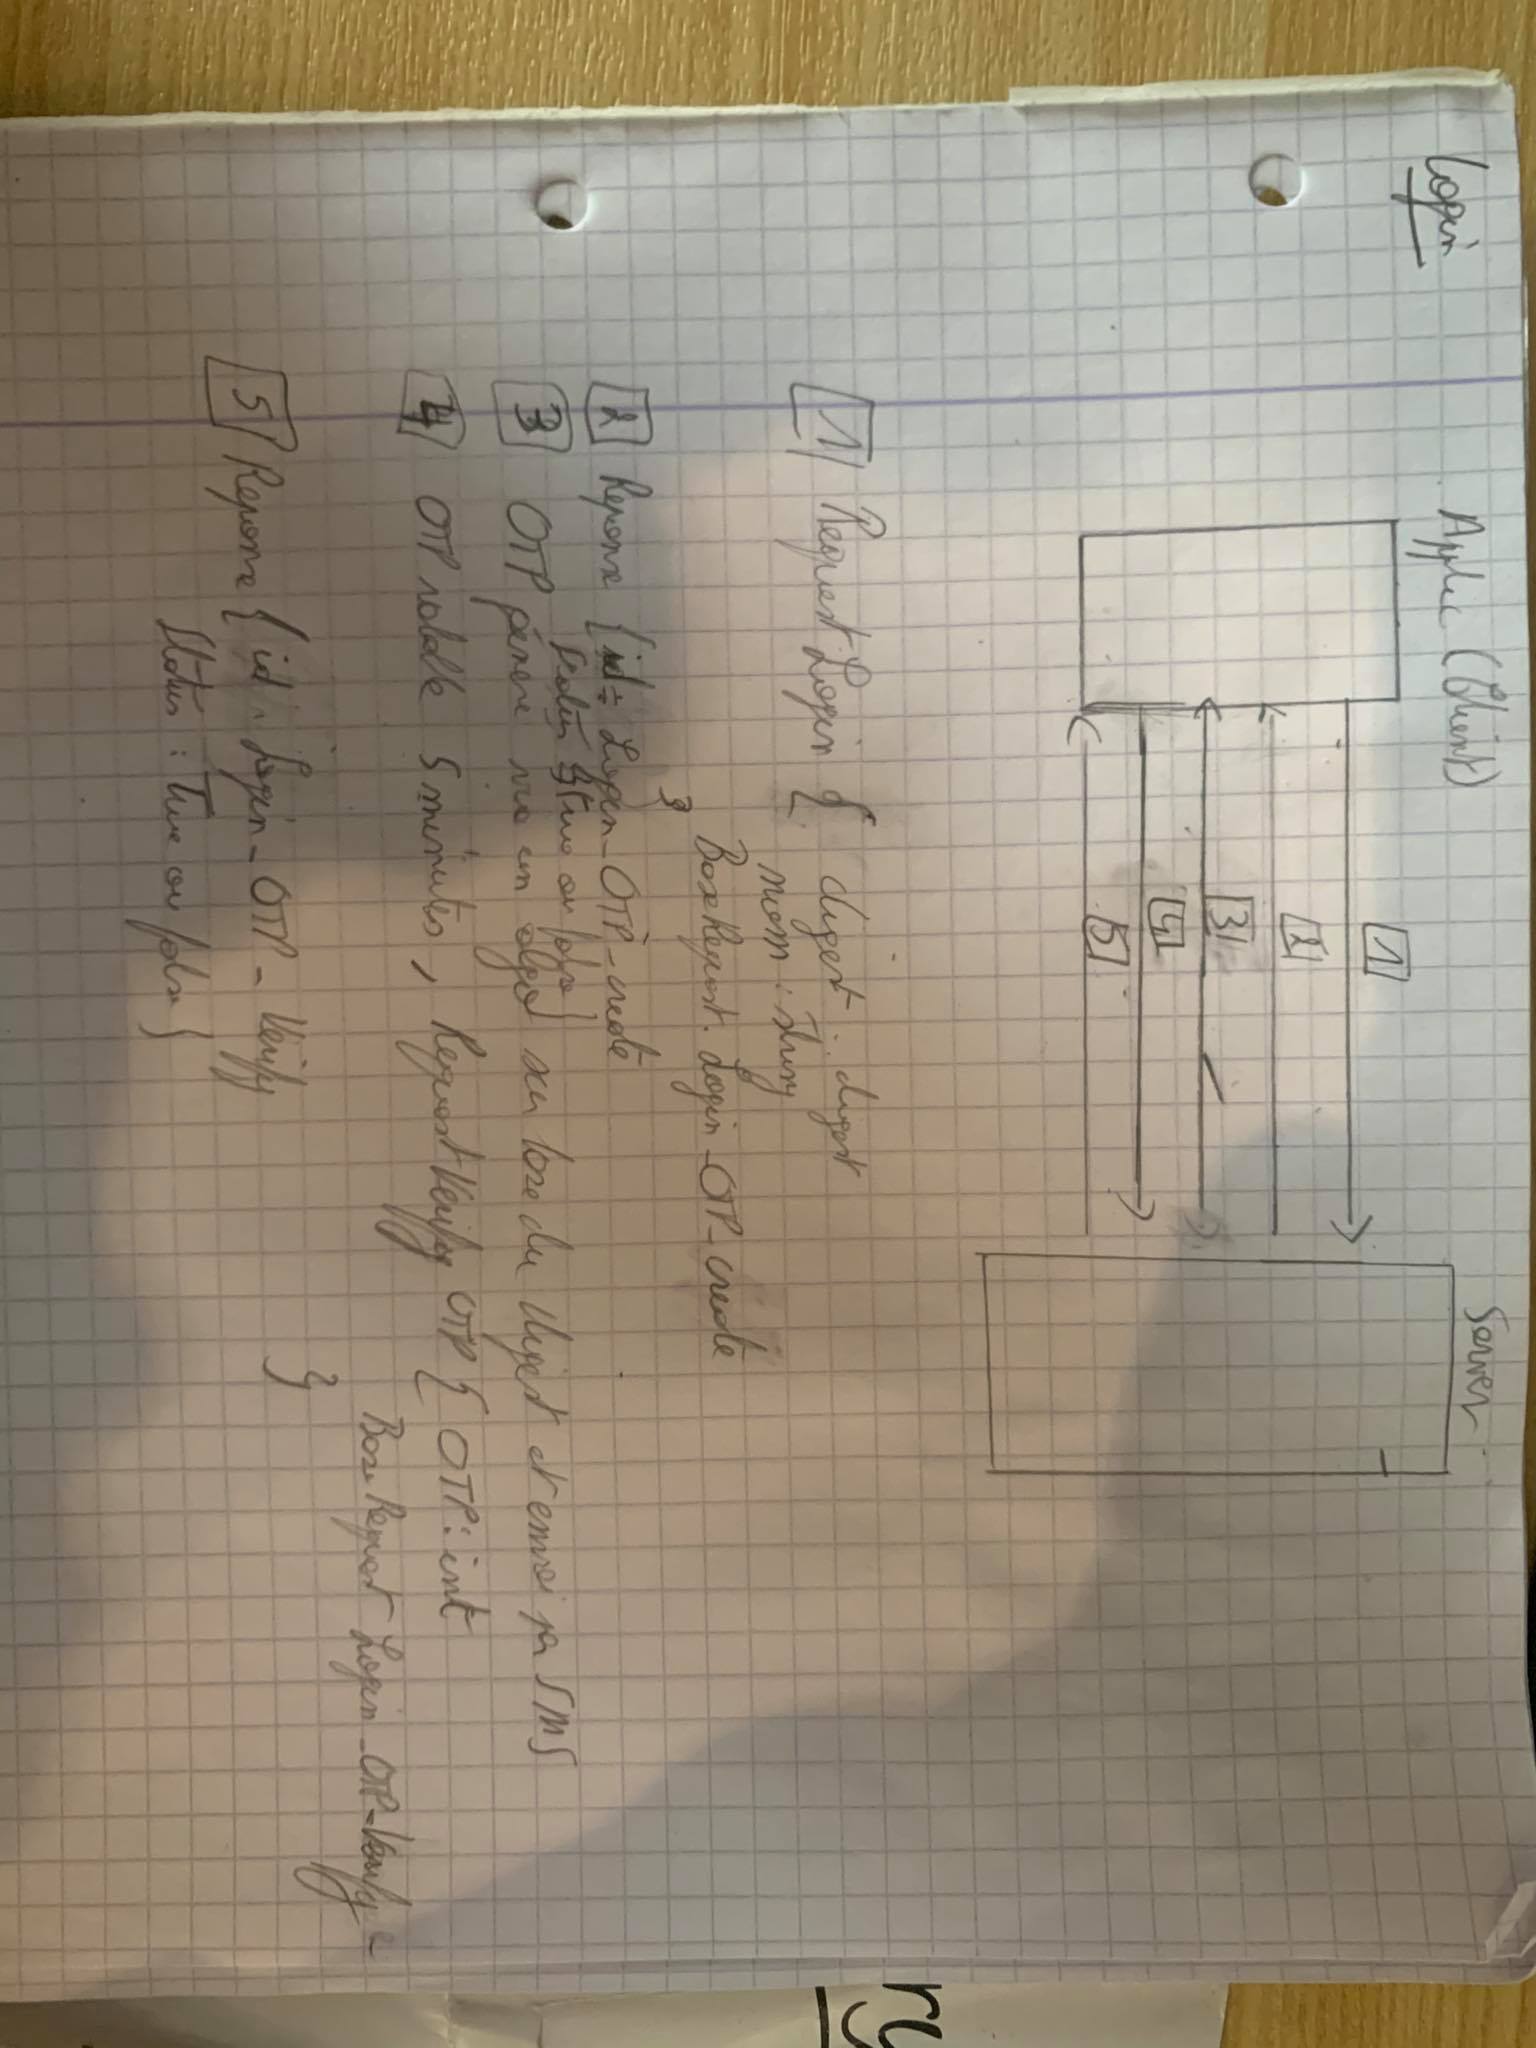 Login
Applic (Client)
Server
1
2
3
4
5
1 Request Login { digest : digest
nom : string
BaseRequest. Login_OTP_create
}
2 Reponse { id = Login_OTP_create
status (true ou false)
3 OTP génére via un algo sur base du digest et envoi par SMS
4 OTP valable 5 minutes, RequestVerify OTP { OTP : int
BaseRequest Login_OTP_Verify =
}
5 Reponse { id = Login_OTP_Verify
Status : True ou false }
ry